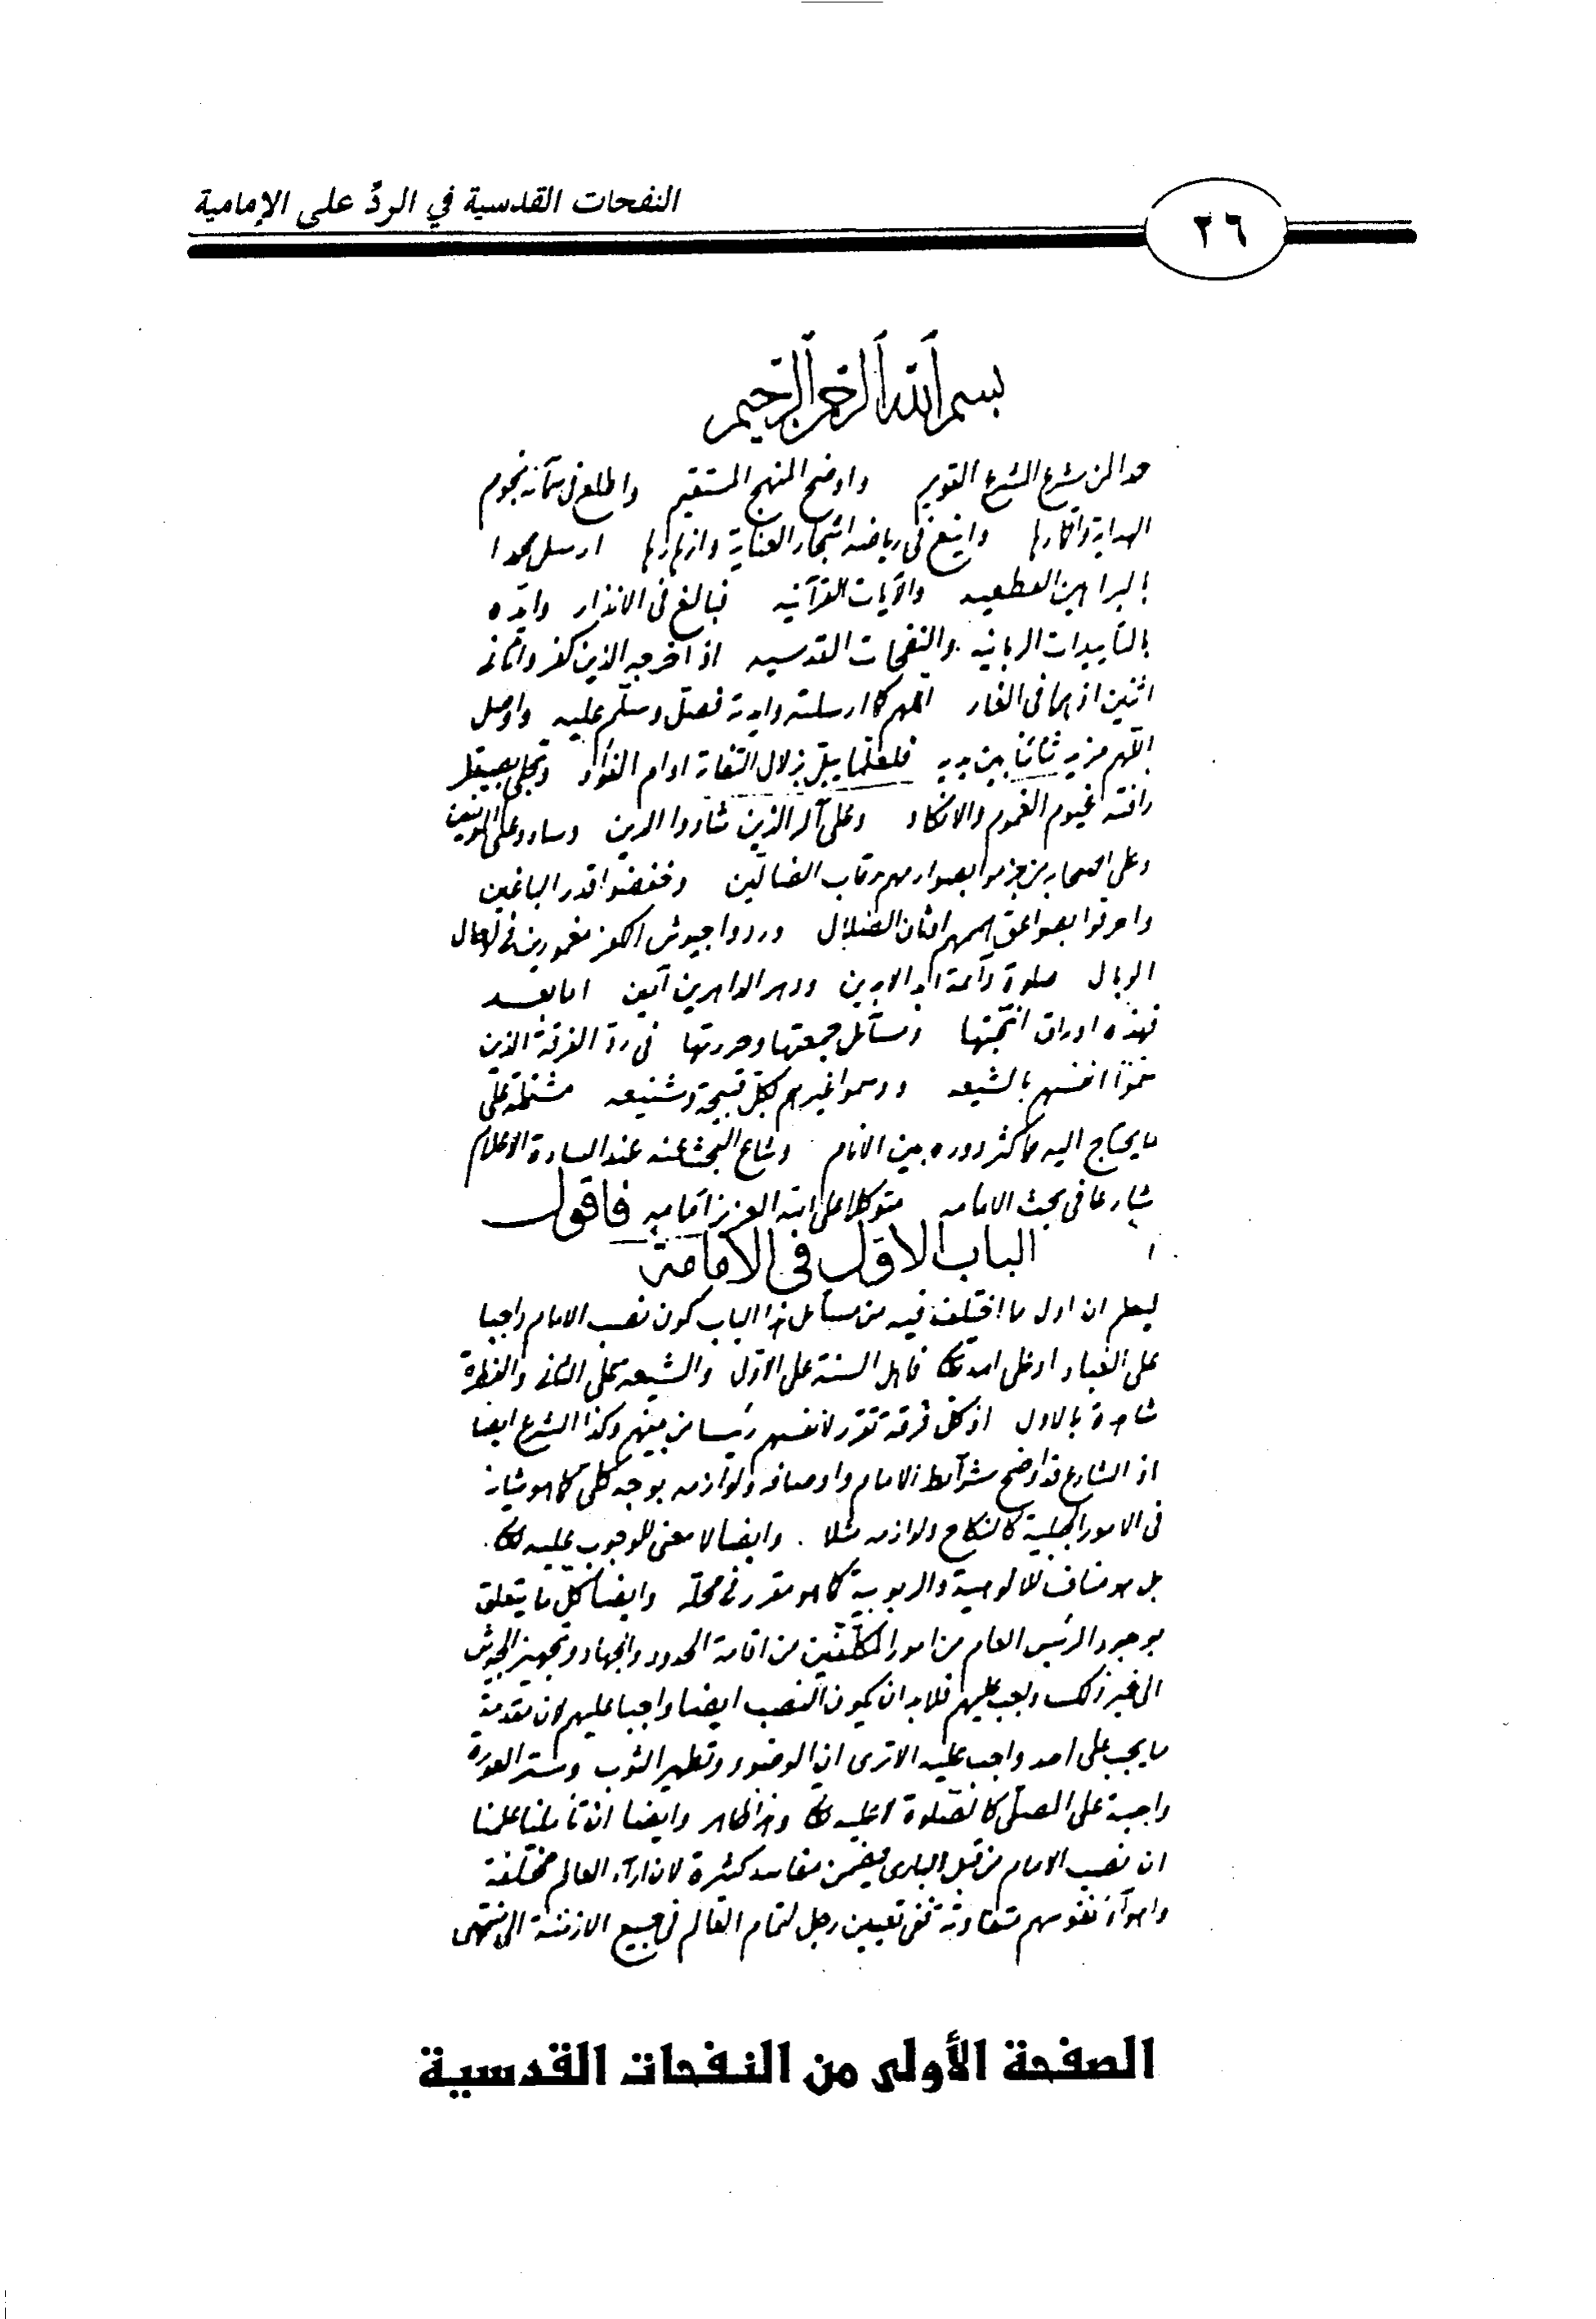 النفحات القدسية في الردّ على الإمامية
٢٦
بسم الله الرحمن الرحيم
حمدا لمن شرع الشرع القويم واوضح المنهج المستقيم واطلع في سمائه نجوم
الهداية واقمارها واينع في رياضه اشجار العناية وازهارها ارسل محمدا
بالبراهين القطعيه والآيات القرآنيه فبالغ في الانذار وايّده
بالتأييدات الربانيه والنفحات القدسيه اذ اخرجه الذين كفروا ثاني
اثنين اذ هما في الغار اللهم كما ارسلته وايدته فصلّ وسلّم عليه واوصل
اللّهم مزيد ثنائنا بين يديه فلعلنا يبل بزلال التفاته اوام الفؤاد وتجلى بصيقل
رافته غيوم الغموم والانكاد وعلى آله الذين شادوا الدين وسادوا على المؤمنين
وعلى اصحابه من جزموا بصوارمهم رقاب الضالّين وخفضوا قدر الباغين
واحرقوا بصواعق هممهم اوثان الضلال وردوا جيوش الكفر مغمورين في اوحال
الوبال صلوة دآئمة ابد الابدين ودهر الداهرين آمين اما بعد
فهذه اوراق انتخبتها ومسآئل جمعتها وحررتها في ردّ الفرقة الذين
سمّوا انفسهم بالشيعه ووسموا غيرهم بكلّ قبيحة وشنيعه مشتملة على
ما يحتاج اليه مما كثر دوره بين الانام وشاع البحث عنه عند السادة الاعلام
شارعا في بحث الامامه متوكلا على الله العزيز امامه فاقول
الباب الاوّل في الامامة
ليعلم ان اول ما اختلف فيه من مسآئل هذا الباب كون نصب الامام واجبا
على العباد او على الله تعالى فاهل السنة على الاوّل والشيعه على الثاني والفطرة
شاهدة بالاول اذ كلّ فرقة تقرر لانفسهم رئيسا من بينهم وكذا الشرع ايضا
اذ الشارع قد اوضح شرآئط الامام واوصافه ولوازمه بوجه كلّي كما هو شانه
في الامور الجبلية كالنكاح ولوازمه مثلا . وايضا لا معنى للوجوب عليه تعالى .
بل هو مناف للالوهية والربوبية كما هو مقرر في محلّه وايضا كلّ ما يتعلق
بوجود الرئيس العام من امور المكلّفين من اقامة الحدود والجهاد وتجهيز الجيوش
الى غير ذلك واجب عليهم فلا بد ان يكون النصب ايضا واجبا عليهم لان مقدمة
ما يجب على احد واجب عليه الا ترى ان الوضوء وتطهير الثوب وستر العورة
واجبة على المصلّي كالصّلوة لا عليه تعالى وهذا ظاهر وايضا ان تأملنا علمنا
ان نصب الامام من قبل الباري يتضمن مفاسد كثيرة لان ارآء العالم مختلفة
واهوآء نفوسهم متفاوتة ففي تعيين رجل لتمام العالم في جميع الازمنة الى منتهى
الصفحة الأولى من النفحات القدسية